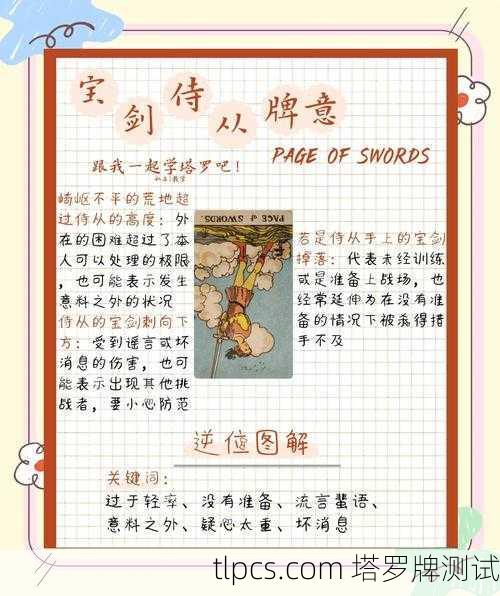 宝剑侍从牌意
PAGE OF SWORDS
跟我一起学塔罗吧！
崎岖不平的荒地超
过侍从的高度：外
在的困难超过了本
人可以处理的极限
，也可能表示发生
意料之外的状况
侍从的宝剑刺向下
方：受到谣言或坏
消息的伤害，也可
能表示出现其他挑
战者，要小心防范
PAGE of SWORDS.
若是侍从手上的宝剑
掉落：代表未经训练
或是准备上战场，也
经常延伸为在没有准
备的情况下被杀得措
手不及
逆位图解
关键词：
过于轻率、没有准备、流言蜚语、
意料之外、疑心太重、坏消息
tlpcs.com 塔罗牌测试